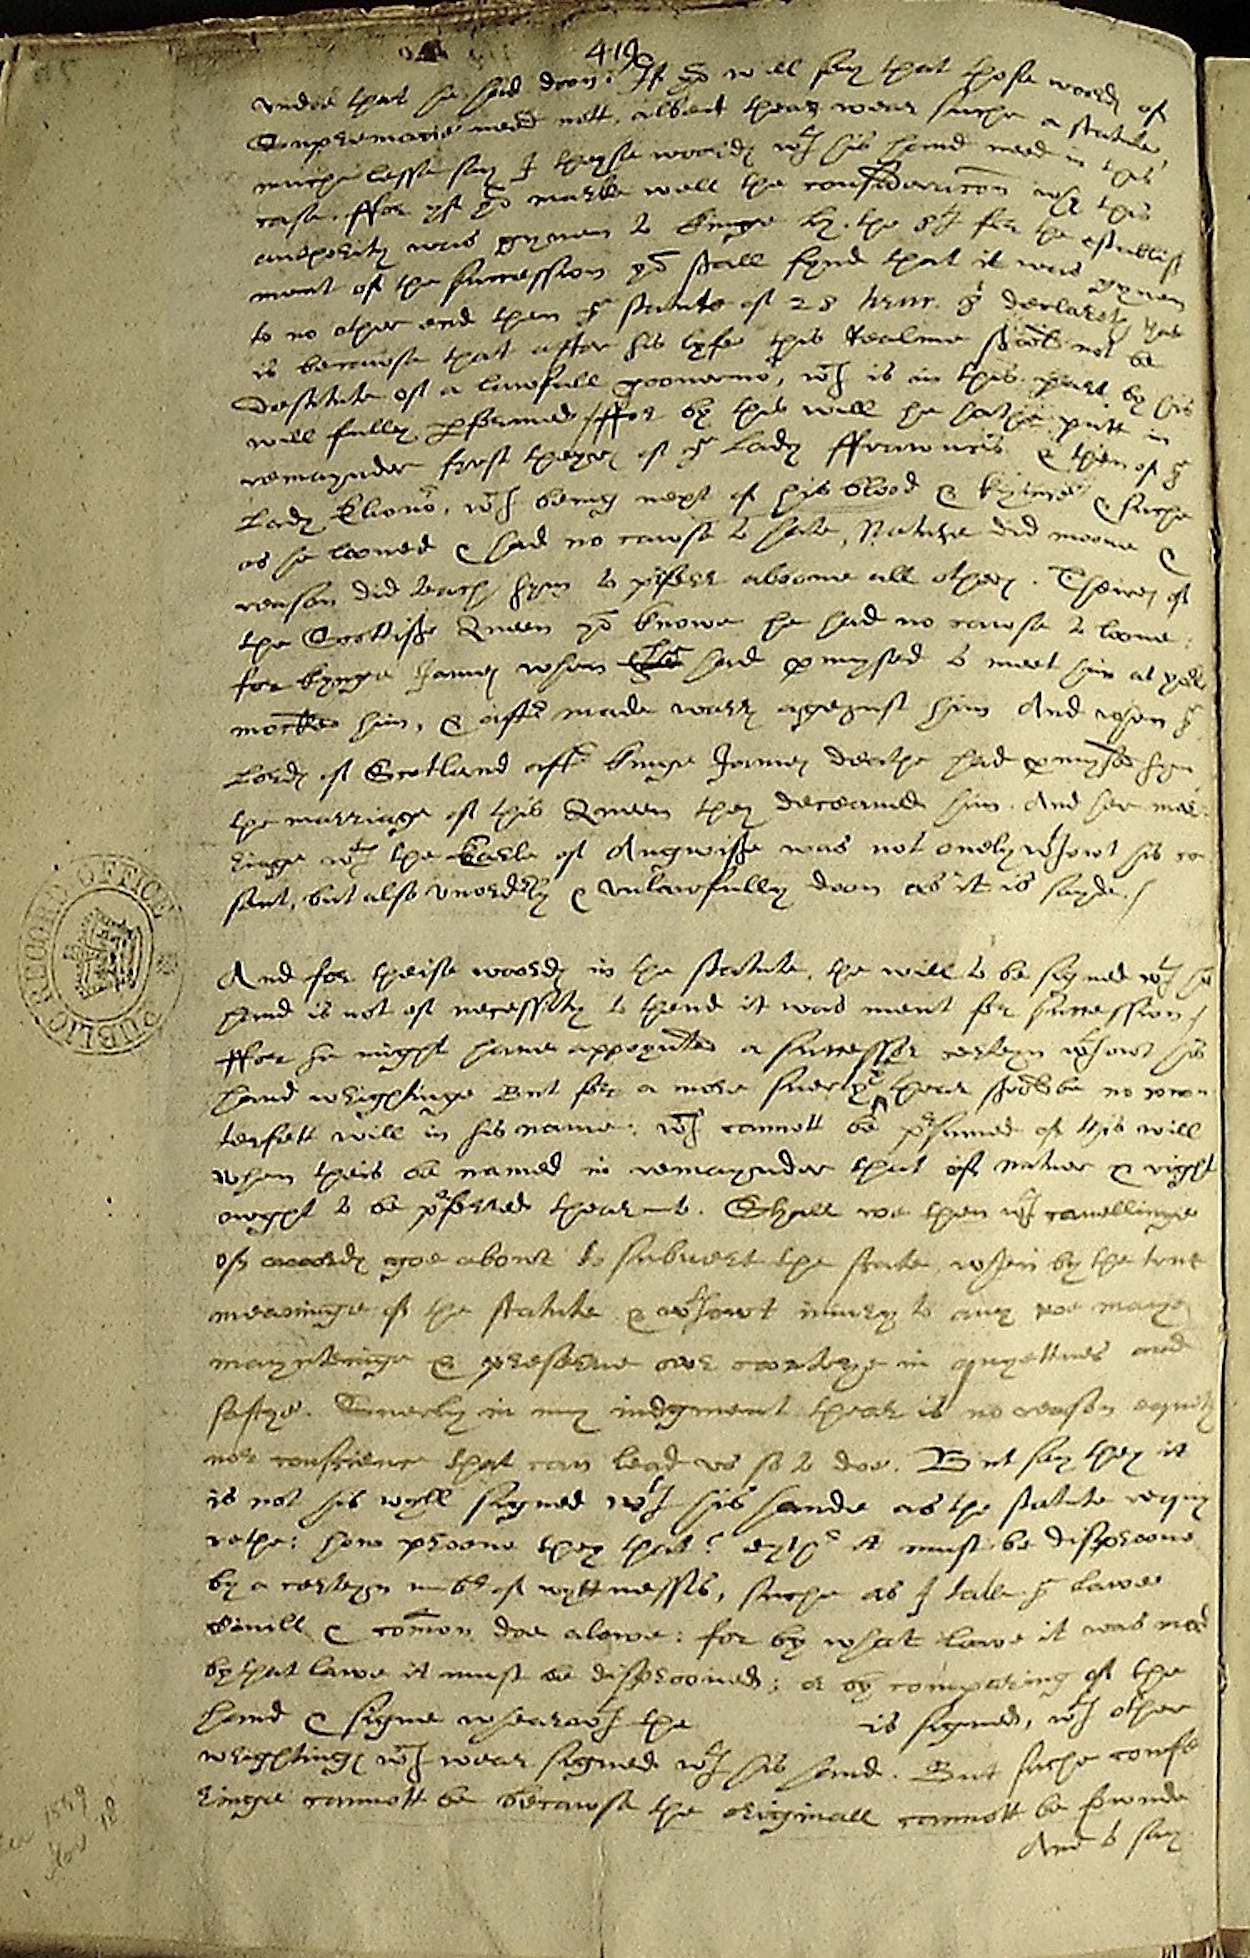 419
vnder that he had doon? If yo will say that those woordꝭ of
Supremacie need nott, albeit thear wear suche a statute
muche lesse say I theyse woordꝭ wth his hand need in this
case. ffor yf yo marke well the consideracōn why this
authority was gyuen to kinge by the for the establish
ment of the succession yo shall fynd that it was gyuen
to no other end then ye statute of 28 henr. 8 declareth, that
is because that after his lyfe this Realme should not be
destitute of a lawfull gouernor, wch is in this part by his
will fully pformed / ffor by this will he hathe putt in
remaynder fyrst theyres of ye Lady ffraunces & then of ye
Lady Elionor, wch being next of his blood & kynred & suche
as he looued & had no cause to hate, Nature did mooue &
reason did teach hym to prferr aboue all others. Theires of
the Scottishe Queen yo knowe he had no cause to looue:
for kynge James when he had promysed to meet him at york
mocked him, & aftr made warre ageynst him And when ye
Lordꝭ of Scotland aftr kinge James deathe had promysed hym
the marriage of this Queen they deceaued him. And her mar-
riage wth the Earle of Angwishe was not onely wthowt his co
sent, but also vnorderly & vnlawfully doon as it is sayde./
And for theise woordꝭ in the statute, the will to be signed wth his
hand is not of necessity to thend it was ment for succession /
ffor he might haue appoynted a successor certeyn wthowt his
hand wrightinge But for a more suerty thear should be no coun
terfett will in his name: wch cannott be prsumed of this will
when theis be named in remaynder that of nature & right
owght to be prferred thearto. Shall we then wth cauellinge
of woordꝭ goe abowt to subuert the state, when by the true
meaninge of the statute & wthowt iniury to any we maye
maynteine & preserue owr contrye in quyettnes and
saftye. Suerly in my iudgment thear is no reason equity
nor conscience that can lead vs so to doe. But say they it
is not his wyll signed wth his hande as the statute requy
rethe: how prooue they that? eythr it must be disprooued
by a certeyn nūber of wyttnesses, suche as I take ye lawes
Ciuill & cōmon doe alowe: for by what lawe it was mad
by that lawe it must be disprooued; or by comparing of the
hand & signe whearwth the is signed, wth other
wrightingꝭ wch wear signed wth his hand. But suche confe
ringe cannott be because the originall cannott be fownde
And to say
PUBLIC RECORD OFFICE
1559
Nov 18